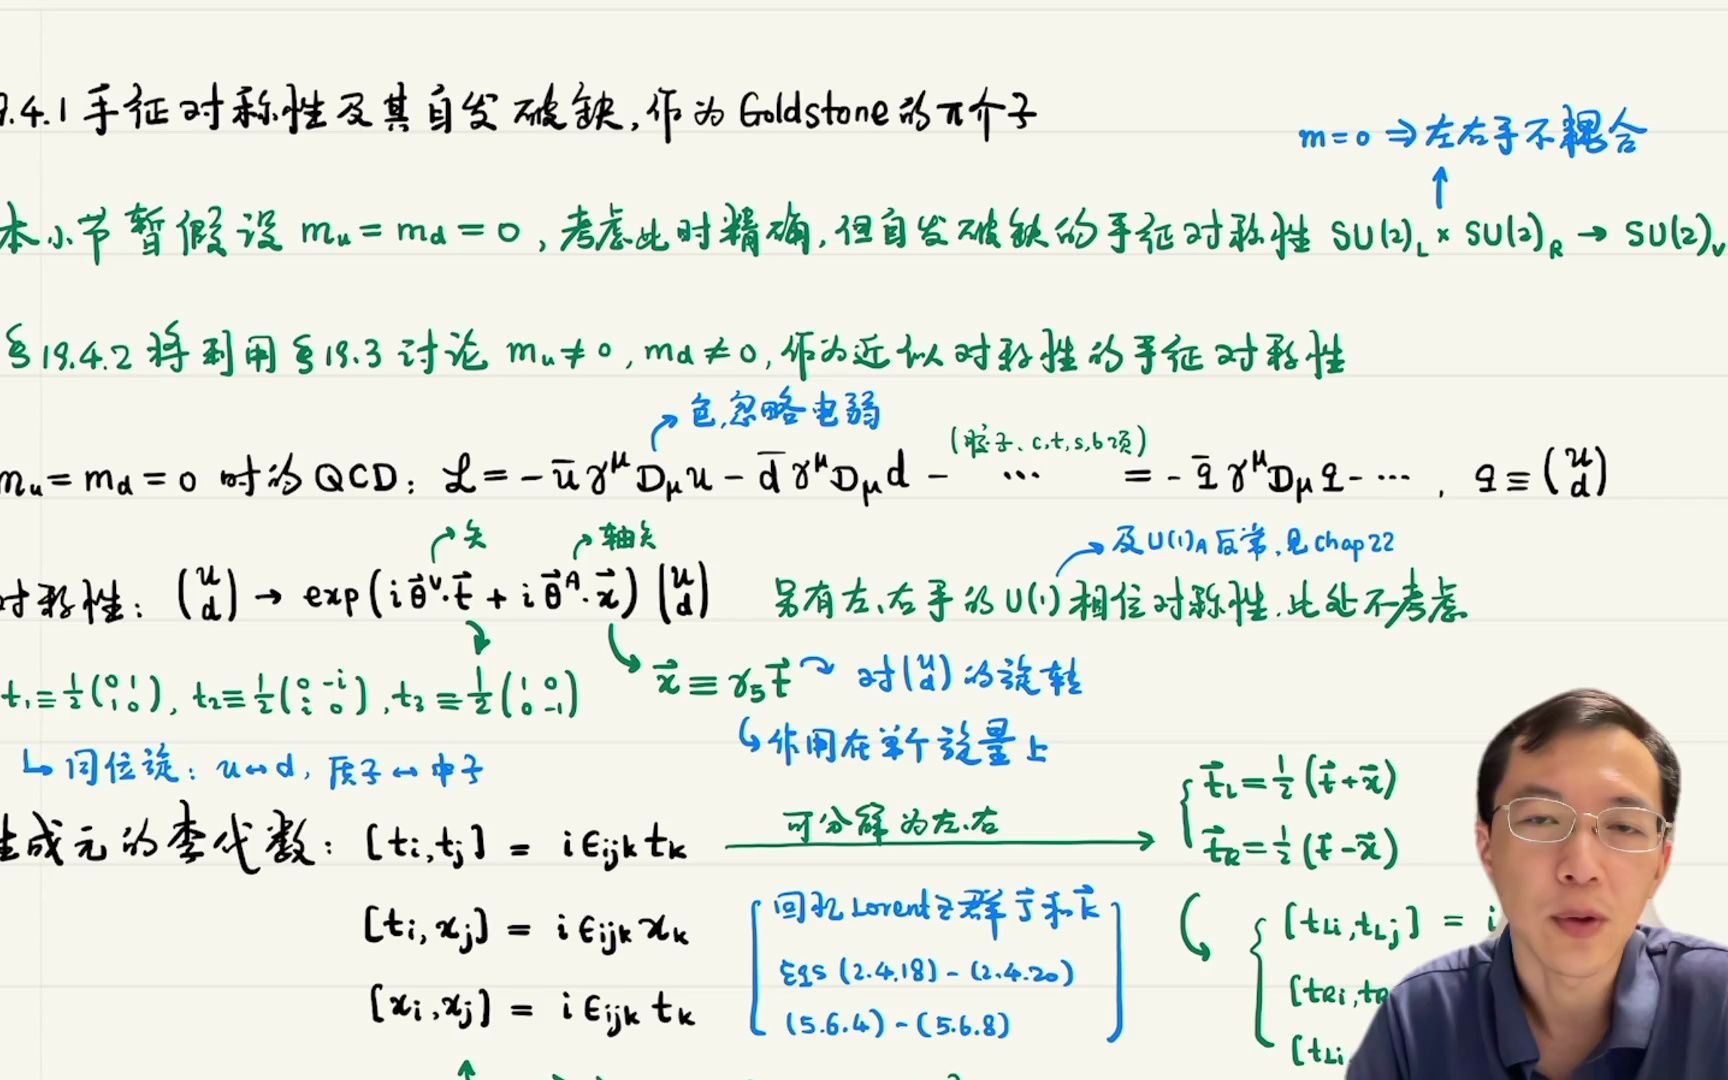 9.4.1 手征对称性及其自发破缺,作为Goldstone的π介子
m=0 ⇒ 左右手不耦合
本小节暂假设 mu = md = 0, 考虑此时精确,但自发破缺的手征对称性 SU(2)L × SU(2)R → SU(2)V
§19.4.2 将利用 §19.3 讨论 mu≠0, md≠0, 作为近似对称性的手征对称性
色,忽略电弱
(胶子、c,t,s,b项)
mu = md = 0 时的QCD: ℒ = -ūγ^μ Dμ u - d̄γ^μ Dμ d - ⋯ = -q̄γ^μ Dμ q - ⋯ , q ≡ (u d)
矢 轴矢 及U(1)A反常,见chap22
对称性: (u d) → exp(iθ⃗^V·t⃗ + iθ⃗^A·x⃗)(u d) 另有左、右手的U(1)相位对称性,此处不考虑
t₁≡½(0 1 1 0), t₂≡½(0 -i i 0), t₃≡½(1 0 0 -1) x⃗ ≡ γ₅t⃗ 对(u d)的旋转
作用在单个旋量上
同位旋: u↔d, 质子↔中子
生成元的李代数: [ti,tj] = iϵijk tk 可分解为左、右 t⃗L = ½(t⃗+x⃗)
t⃗R = ½(t⃗-x⃗)
[ti,xj] = iϵijk xk 回忆Lorentz群 J⃗和K⃗ [tLi,tLj] = i
Eqs (2.4.18) - (2.4.20)
[xi,xj] = iϵijk tk (5.6.4) - (5.6.8) [tRi,tR
[tLi